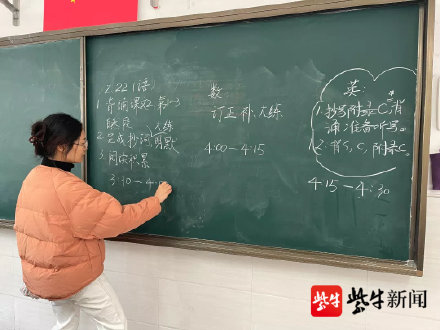 2.22(语)
1.背诵课2 第1-3
自然段
2.完成抄词
大练
3.阅读积累
3:30-4:
数:
订正补、大练
4:00-4:15
英:
1.抄写附录C,背
诵,准备听写。
2.背 附录C。
4:15-4:30
紫牛
紫牛新闻